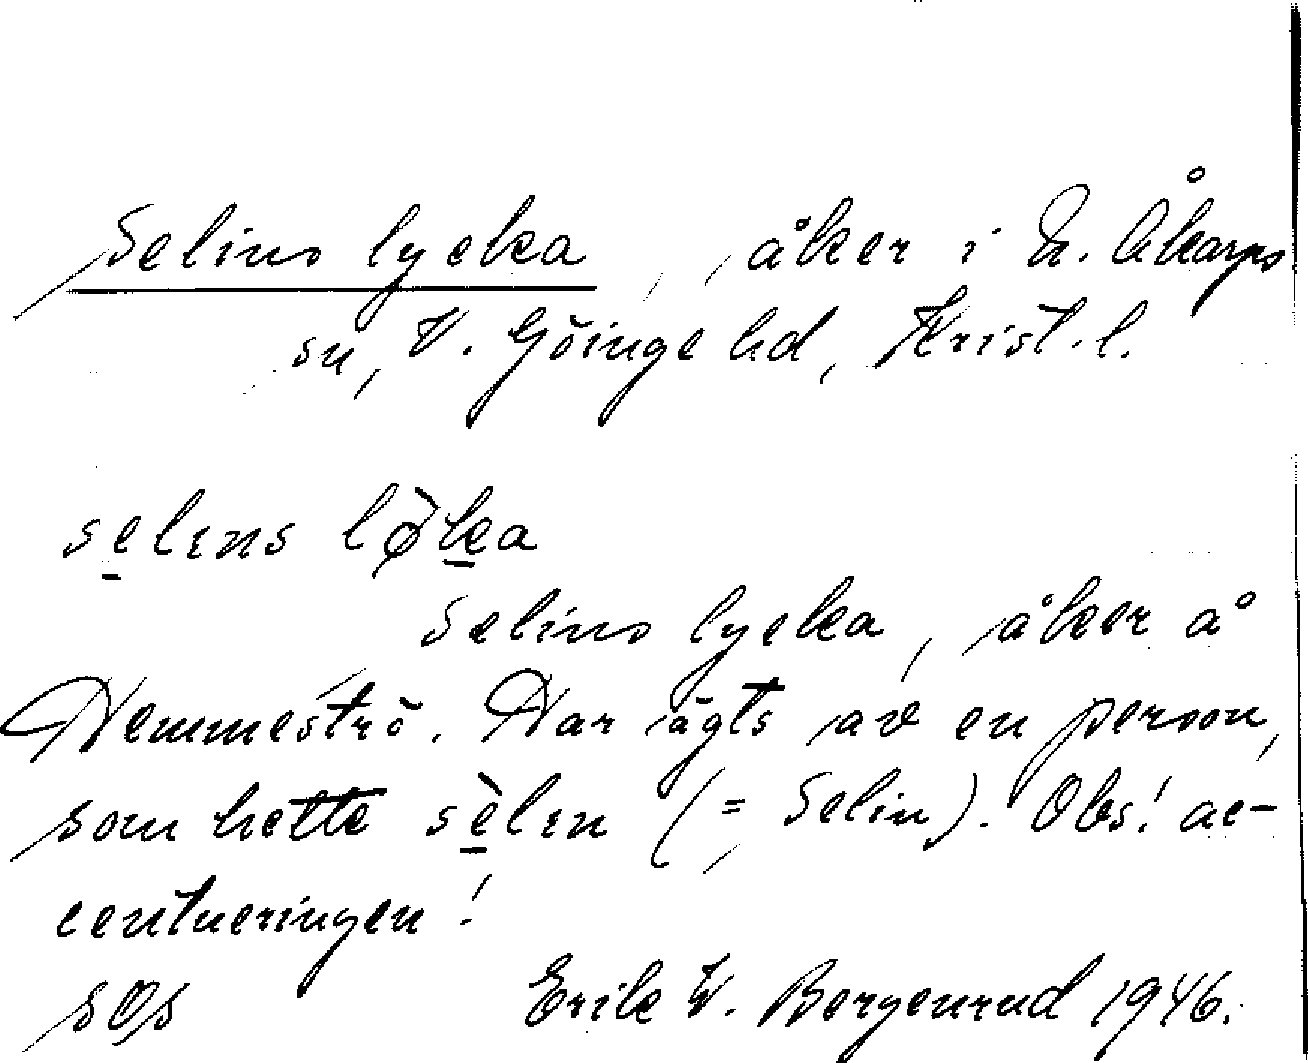 Selins lycka, åker i N. Åkarps
sn, V. Göinge hd, Krist. l.
selɪns lø̀ka
Selins lycka, åker å
Hemmeströ. Har ägts av en person,
som hette sèlɪn (= Selin). Obs! ac-
centueringen!
Erik W. Bergenrud 1946.